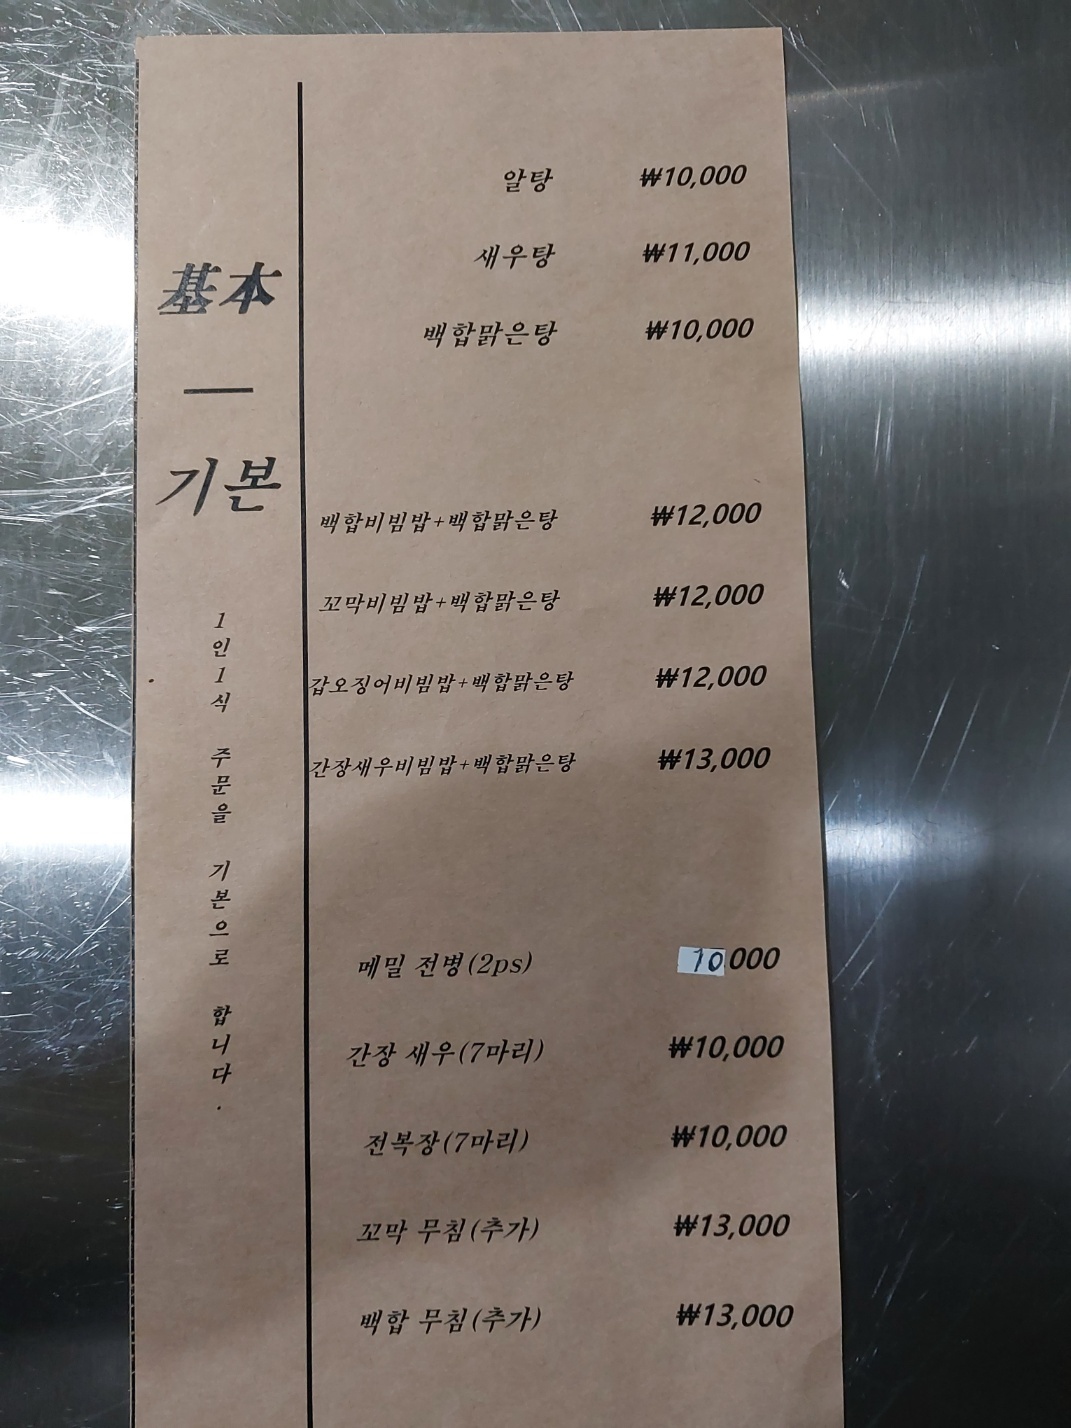 基本
기본
1인1식 주문을 기본으로 합니다.
알탕 ₩10,000
새우탕 ₩11,000
백합맑은탕 ₩10,000
백합비빔밥+백합맑은탕 ₩12,000
꼬막비빔밥+백합맑은탕 ₩12,000
갑오징어비빔밥+백합맑은탕 ₩12,000
간장새우비빔밥+백합맑은탕 ₩13,000
메밀 전병(2ps) 10000
간장 새우(7마리) ₩10,000
전복장(7마리) ₩10,000
꼬막 무침(추가) ₩13,000
백합 무침(추가) ₩13,000